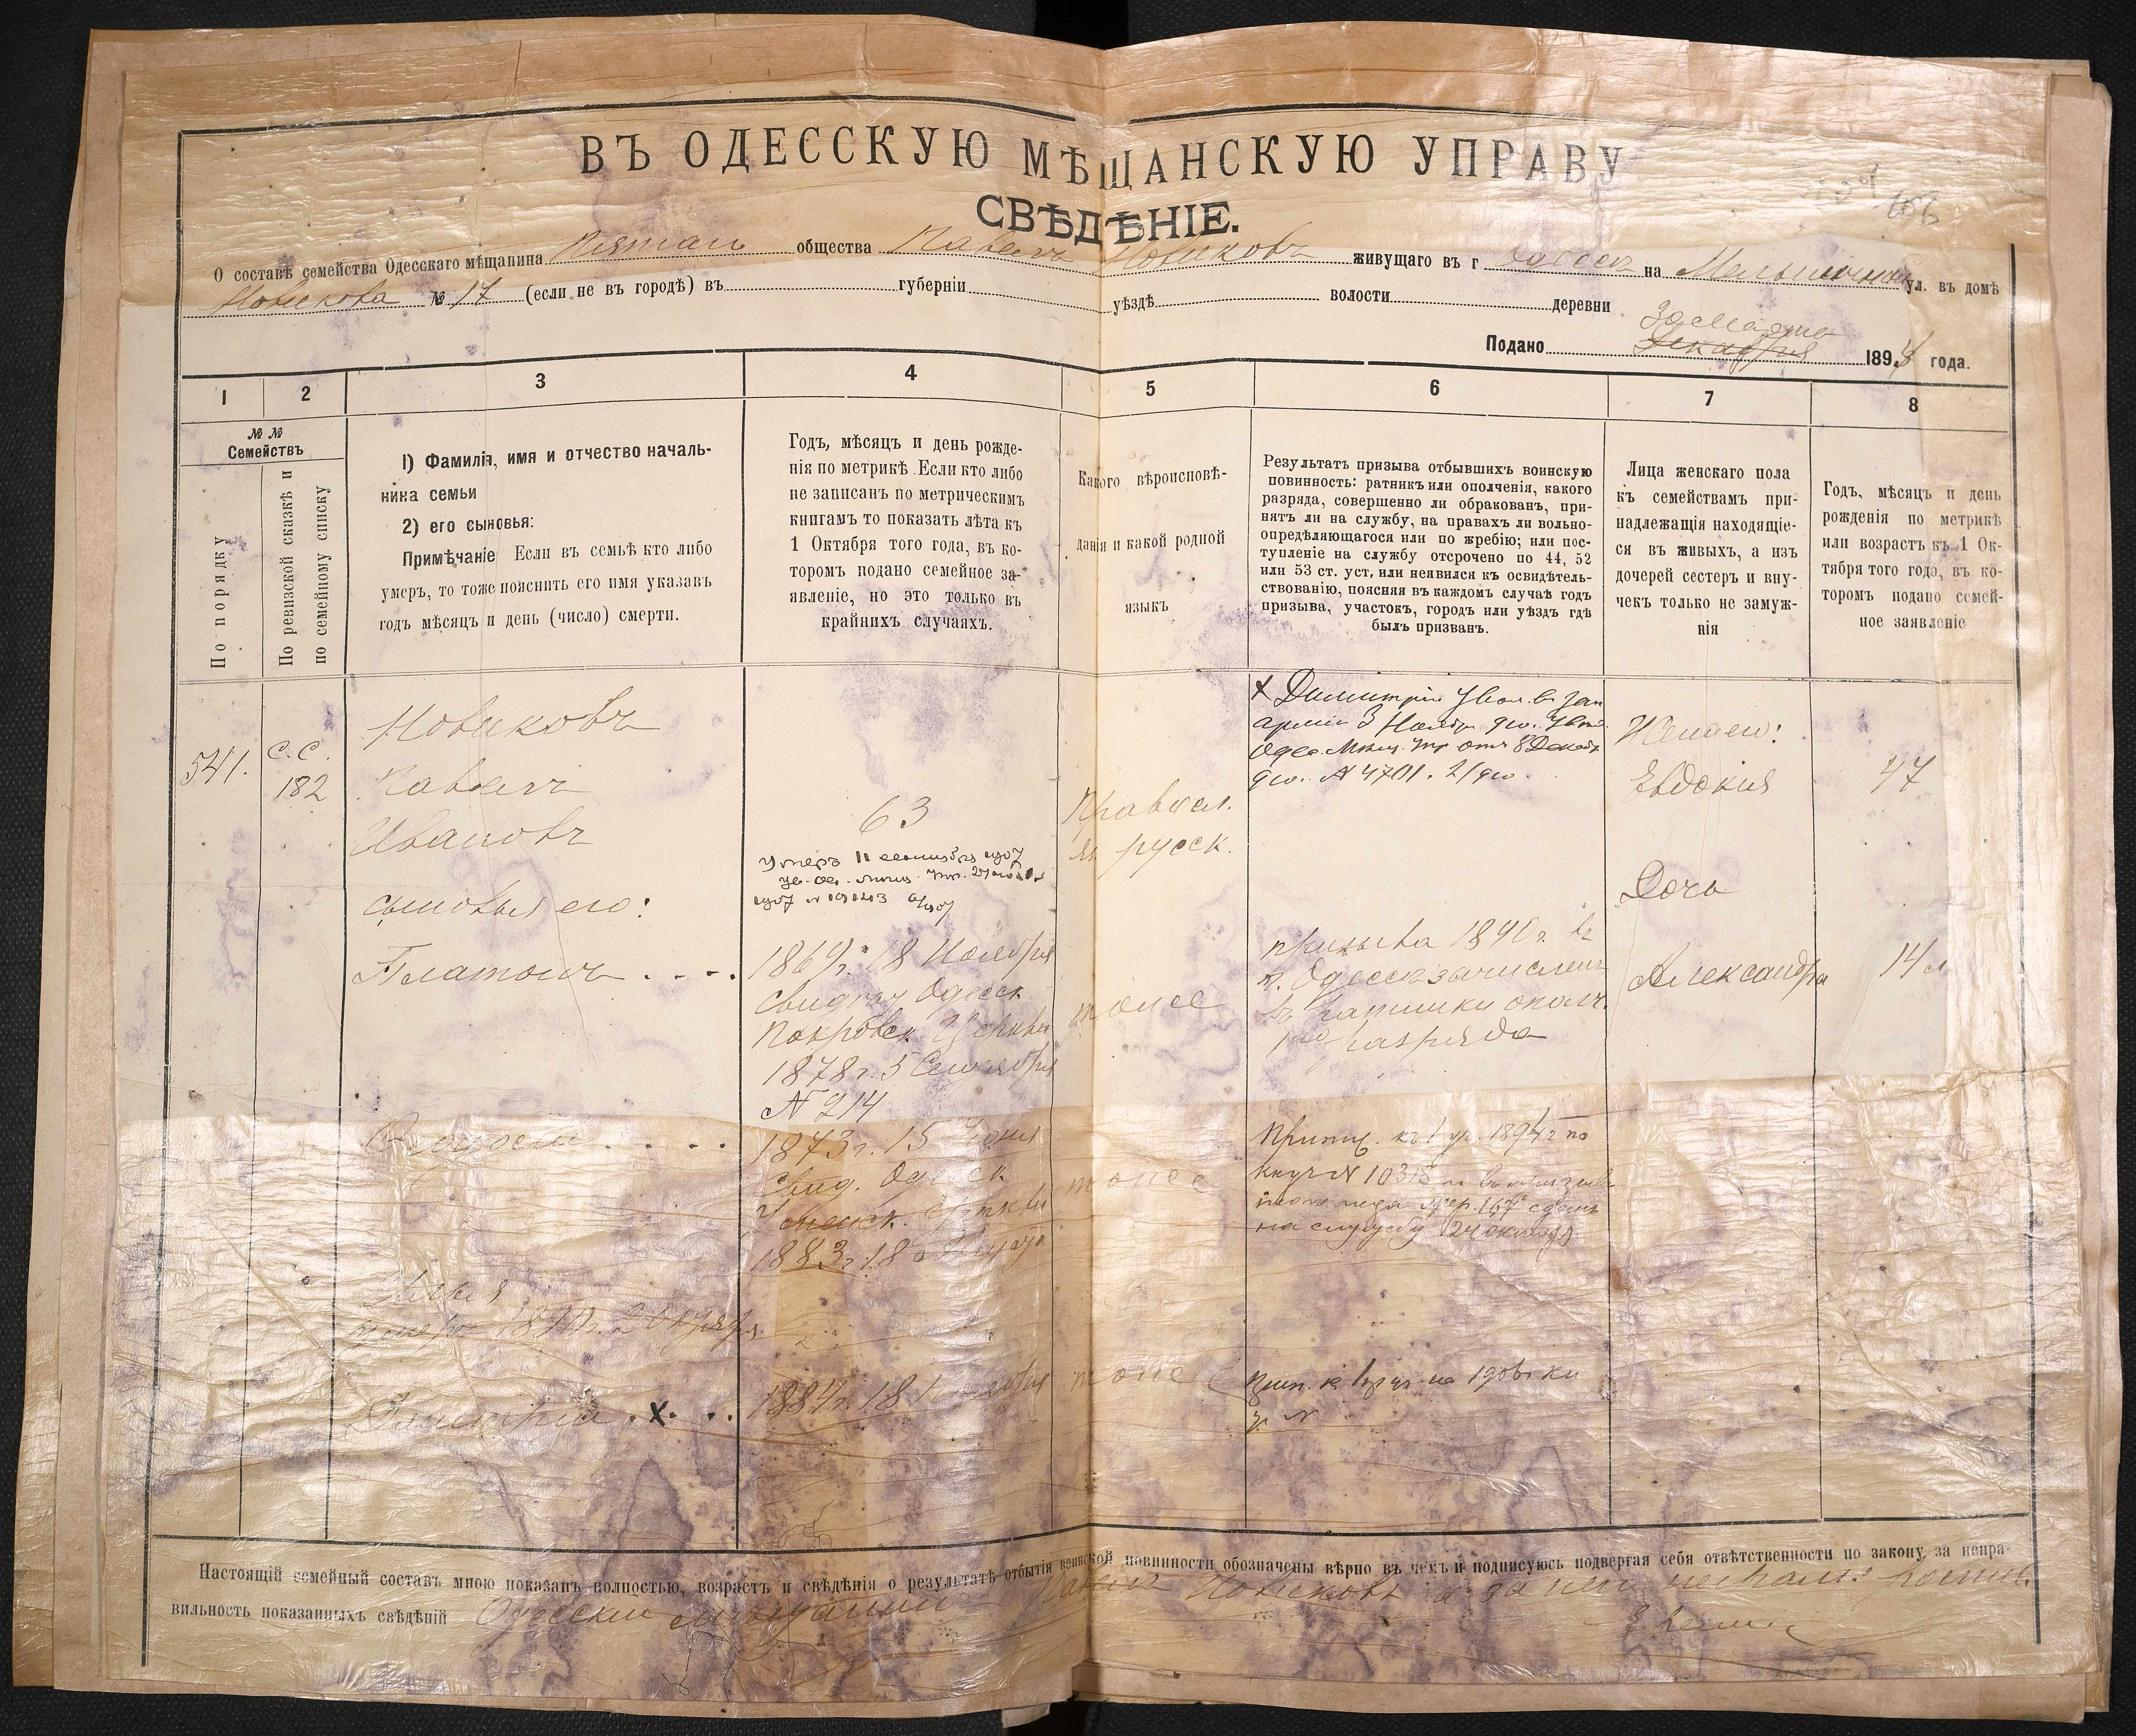 ВЪ ОДЕССКУЮ МѢЩАНСКУЮ УПРАВУ
СВѢДѢНІЕ.
О составѣ семейства Одесскаго мѣщанина общества Павелъ Новиковъ живущаго въ г Одессѣ на ул. въ домѣ
Новикова № 17 (если не въ городѣ) въ губерніи уѣздѣ волости деревни
Подано 30 Марта Декабря 1894 года.
1 2 3 4 5 6 7 8
№ №
Семействъ
По порядку
По ревизской сказкѣ и
по семейному списку
1) Фамилія, имя и отчество началь-
ника семьи
2) его сыновья:
Примѣчаніе Если въ семьѣ кто либо
умеръ, то тоже пояснить его имя указавъ
годъ мѣсяцъ и день (число) смерти.
Годъ, мѣсяцъ и день рожде-
нія по метрикѣ. Если кто либо
не записанъ по метрическимъ
книгамъ то показать лѣта къ
1 Октября того года, въ ко-
торомъ подано семейное за-
явленіе, но это только въ
крайнихъ случаяхъ.
Какого вѣроисповѣ-
данія и какой родной
языкъ
Результатъ призыва отбывшихъ воинскую
повинность: ратникъ или ополченія, какого
разряда, совершенно ли обракованъ, при-
нятъ ли на службу, на правахъ ли вольно-
опредѣляющагося или по жребію; или пос-
тупленіе на службу отсрочено по 44, 52
или 53 ст. уст, или неявился къ освидѣтель-
ствованію, поясняя въ каждомъ случаѣ годъ
призыва, участокъ, городъ или уѣздъ гдѣ
былъ призванъ.
Лица женскаго пола
къ семействамъ при-
надлежащія находящіе-
ся въ живыхъ, а изъ
дочерей сестеръ и вну-
чекъ только не замуж-
нія
Годъ, мѣсяцъ и день
рожденія по метрикѣ
или возрастъ къ 1 Ок-
тября того года, въ ко-
торомъ подано семей-
ное заявленіе
541.
С.С.
182
Новиковъ
Павелъ
Ивановъ
сыновья его:
Платонъ
63
Умеръ 11 сентября 1907
1907 № 19143
1869г. 18 Ноября
Одесск
Покровск. Церкви
1878г. 5 Сентября
№ 214
Православ.
яз. русск.
тоже
х Димитрій Увол. въ зап
арміи 3 Ноября
Одес. Мѣщ. Упр отъ 8 Декаб
№ 4701.
призыва 1890г. въ
г. Одессѣ зачисленъ
въ ратники опол.
1го разряда
Жена его:
Евдокия
47
Дочь
Александра
14 л
1873г. 15
Свид. Одесск
Успенск. Церкви
1883г. 18
тоже
Припис. къ 1 уч. 1894г по
№ 10318
на службу
Илья
умеръ
Димитрій х
1884г. 18
тоже
Прип. къ 1 на 1906
Настоящій семейный составъ мною показанъ полностью, возрастъ и свѣдѣнія о результатѣ отбытія воинской повинности обозначены вѣрно въ чемъ и подписуюсь подвергая себя отвѣтственности по закону за непра-
вильность показанныхъ свѣдѣній Одесскій мѣщанинъ Павелъ Новиковъ а за него